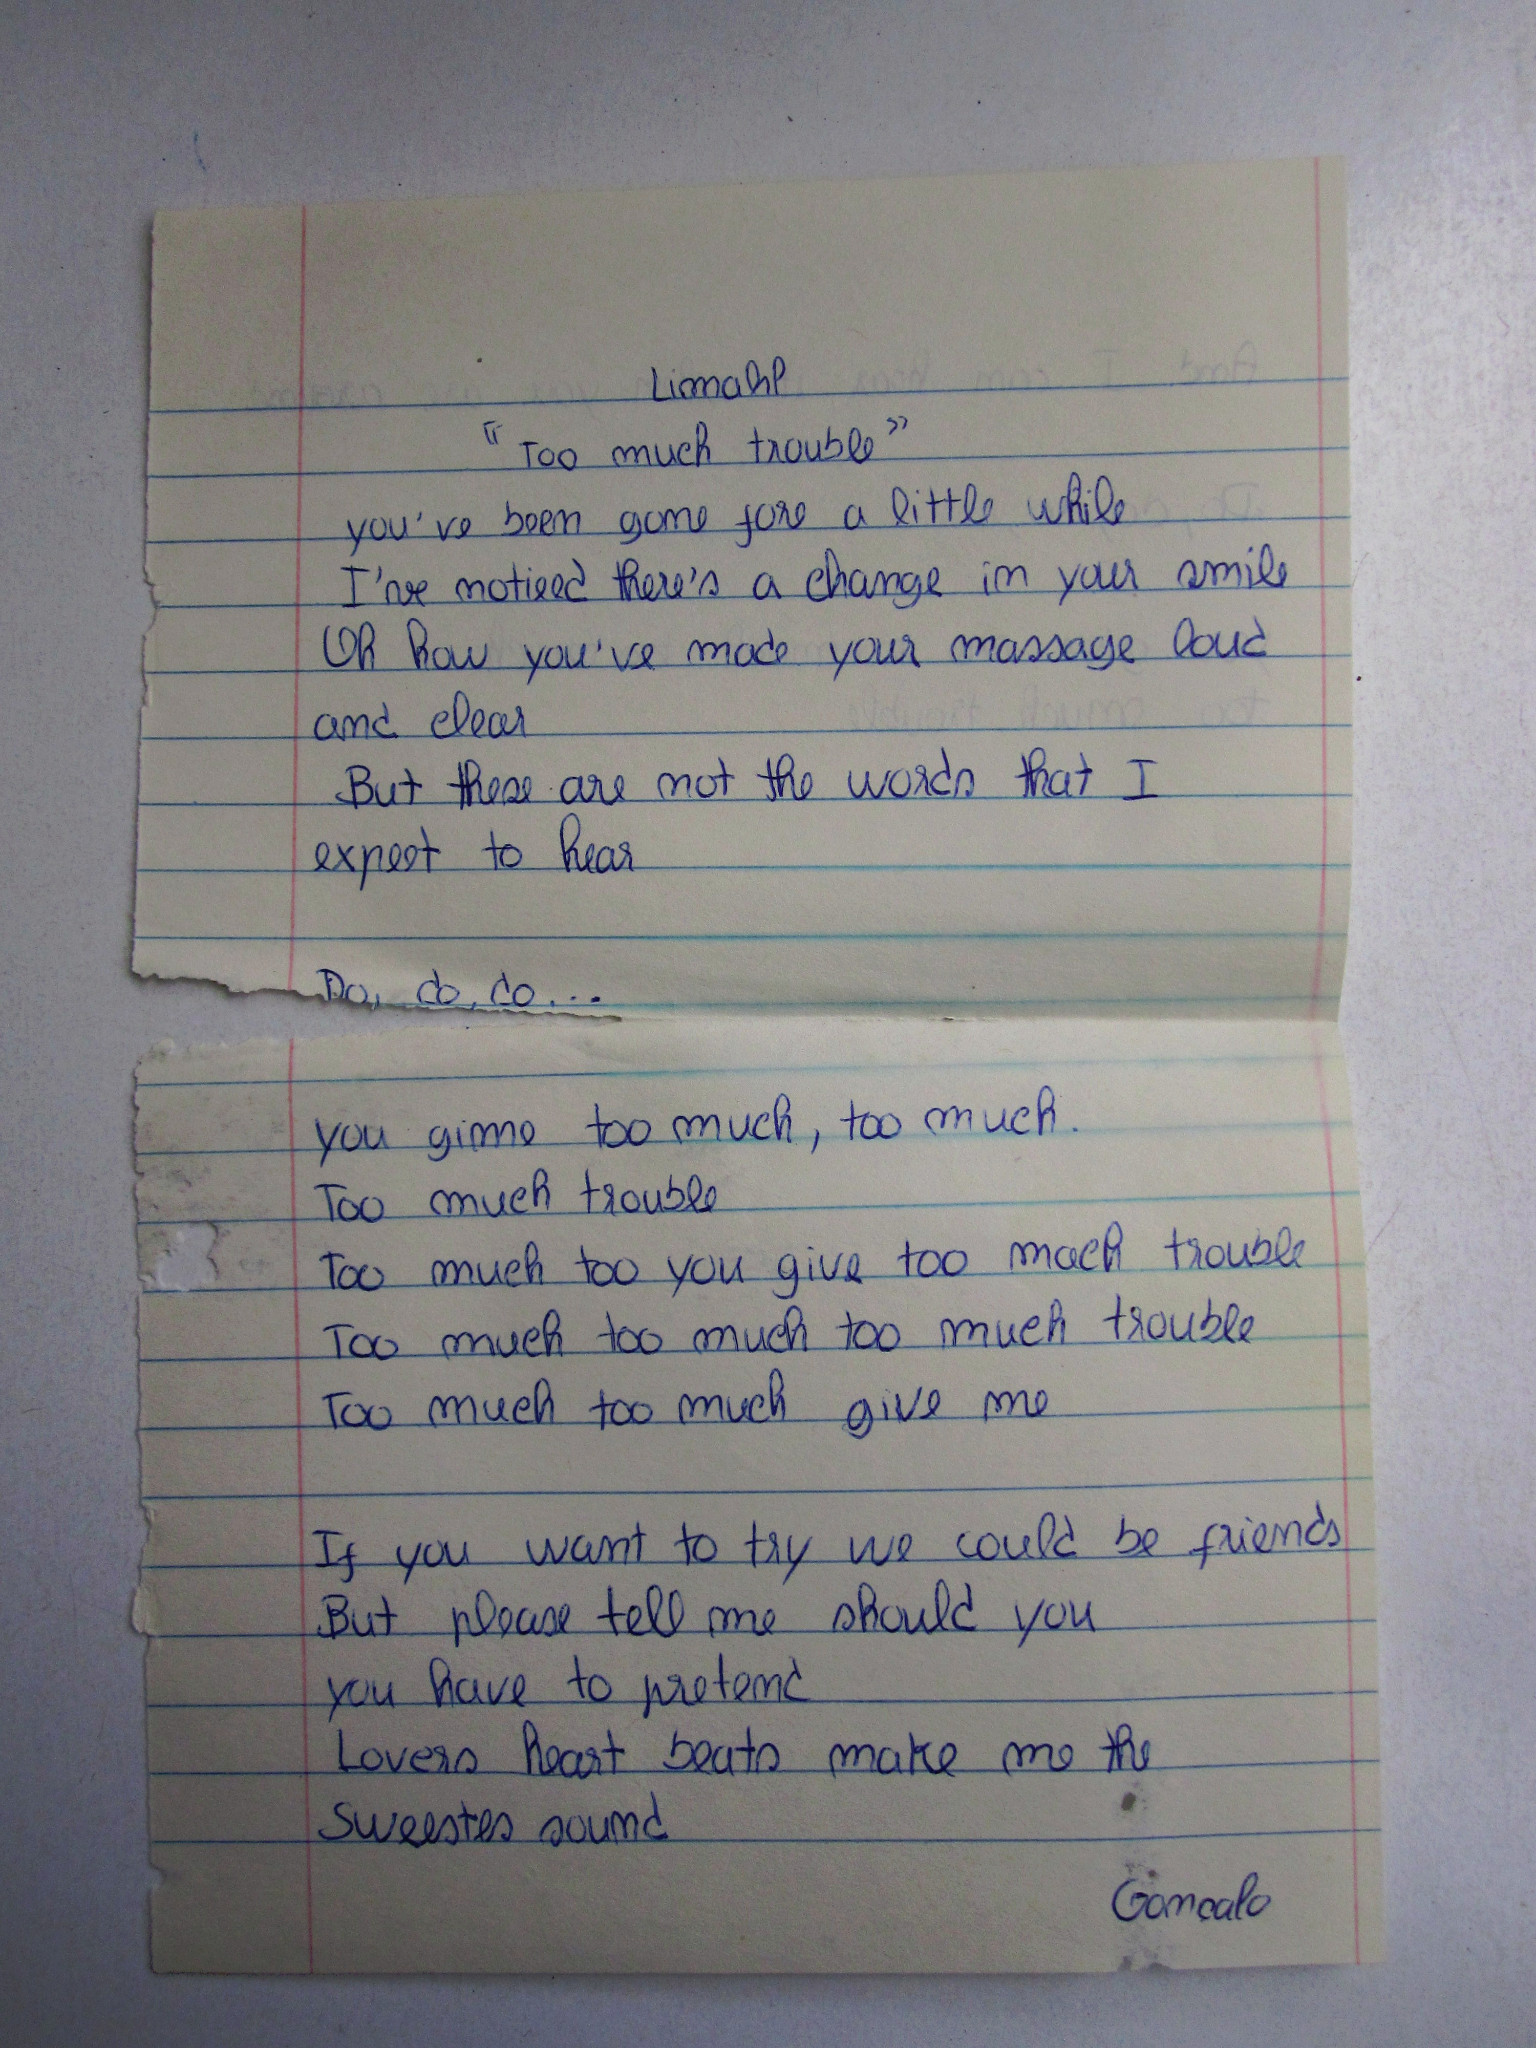 Limahl
"Too much trouble"
you've been gone fore a little while
I've noticed there's a change in your smile
Oh how you've made your massage loud
and clear
But these are not the words that I
expect to hear
Do, do, do...
you gimme too much, too much.
Too much trouble
Too much too you give too mach trouble
Too much too much too much trouble
Too much too much give me
If you want to try we could be friends
But please tell me should you
you have to pretend
Lovers heart beats make me the
sweestes sound
Gonçalo